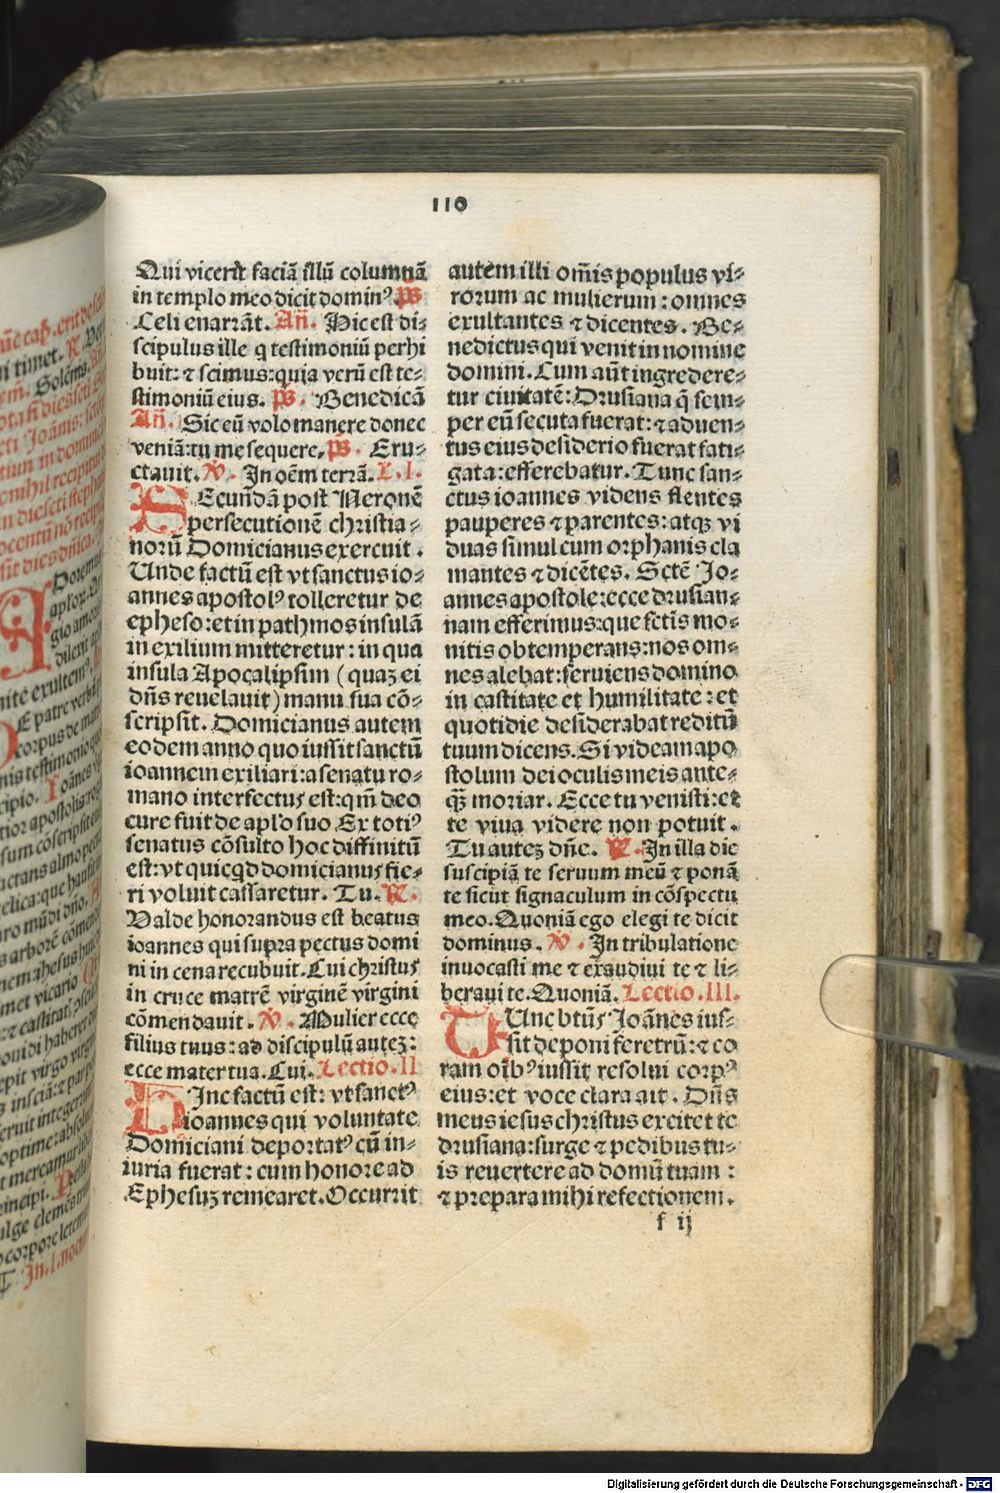 110
Qui vicerit faciā illū columnā
in templo meo dicit dominꝰ. ps
Celi enarrāt. Añ. Hic est di⸗
scipulus ille q testimoniū perhi
buit: ⁊ scimus: quia verū est te⸗
stimoniū eius. ps. Benedicā
Añ. Sic eū volo manere donec
veniā: tu me sequere. ps. Eru⸗
ctauit. ℣. In oēm terrā. L. I.
SEcundā post Neronē
persecutionē christia⸗
norū Domicianus exercuit.
Unde factū est vt sanctus io⸗
annes apostolꝰ tolleretur de
epheso: et in pathmos insulā
in exilium mitteretur: in qua
insula Apocalipsim (quaꝫ ei
dñs reuelauit) manu sua cō⸗
scripsit. Domicianus autem
eodem anno quo iussit sanctū
ioannem exiliari: a senatu ro⸗
mano interfectus est: qm̄ deo
cure fuit de aplo suo Ex totiꝰ
senatus cōsulto hoc diffinitū
est: vt quicqd domicianus fie⸗
ri voluit cassaretur. Tu. ℟.
Valde honorandus est beatus
ioannes qui supra pectus domi
ni in cena recubuit. Cui christus
in cruce matrē virginē virgini
cōmendauit. ℣. Mulier ecce
filius tuus: ad discipulū auteꝫ:
ecce mater tua. Cui. Lectio. II
HInc factū est: vt sanctꝰ
ioannes qui voluntate
Domiciani deportatꝰ cū in⸗
iuria fuerat: cum honore ad
Ephesuꝫ remearet. Occurrit
autem illi om̄is populus vi⸗
rorum ac mulierum: omnes
exultantes ⁊ dicentes. Be⸗
nedictus qui venit in nomine
domini. Cum aūt ingredere⸗
tur ciuitatē: Drusiana q̄ sem⸗
per eū secuta fuerat: ⁊ aduen⸗
tus eius desiderio fuerat fati⸗
gata: efferebatur. Tunc san⸗
ctus ioannes videns flentes
pauperes ⁊ parentes: atqꝫ vi
duas simul cum orphanis cla
mantes ⁊ dicētes. Sctē Jo⸗
annes apostole: ecce drusian⸗
nam efferimus: que sctis mo⸗
nitis obtemperans: nos om⸗
nes alebat: seruiens domino
in castitate et humilitate: et
quotidie desiderabat reditū
tuum dicens. Si videam apo
stolum dei oculis meis ante⸗
qꝫ moriar. Ecce tu venisti: et
te viua videre non potuit.
Tu auteꝫ dñe. ℟. In illa die
suscipiā te seruum meū ⁊ ponā
te sicut signaculum in cōspectu
meo. Quoniā ego elegi te dicit
dominus. ℣. In tribulatione
inuocasti me ⁊ exaudiui te ⁊ li⸗
beraui te. Quoniā. Lectio. III.
TUnc btūs Joānes ius⸗
sit deponi feretrū: ⁊ co
ram oībꝰ iussit resolui corpꝰ
eius: et voce clara ait. Dñs
meus iesus christus excitet te
drusiana: surge ⁊ pedibus tu⸗
is reuertere ad domū tuam:
⁊ prepara mihi refectionem.
f ij
Digitalisierung gefördert durch die Deutsche Forschungsgemeinschaft - DFG